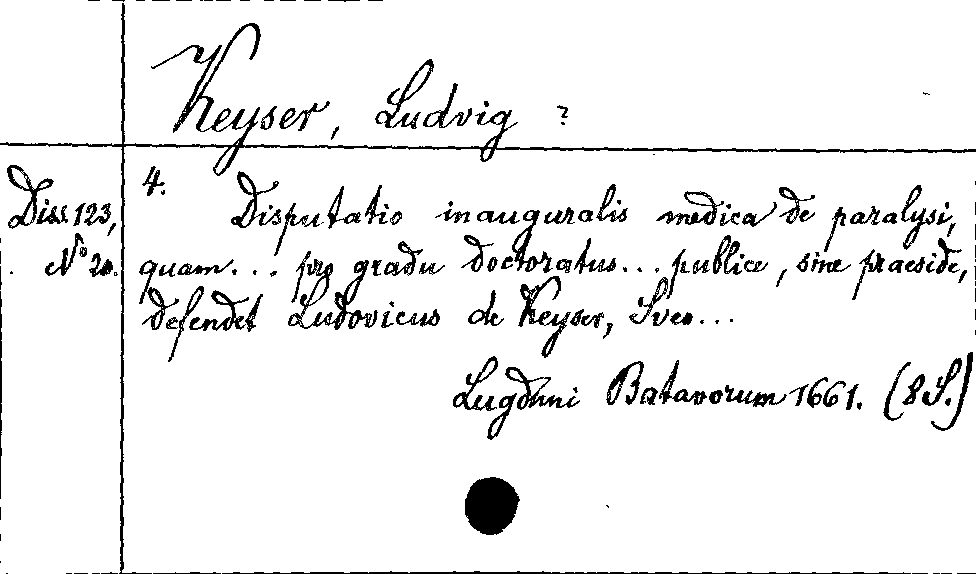 Keyser, Ludvig ?
Diss. 123,
No 20.
4.
Disputatio inauguralis medica de paralysi,
quam... pro gradu doctoratus... publice, sine praeside,
defendet Ludovicus de Keyser, Sveo...
Lugduni Batavorum 1661. (8 S.)